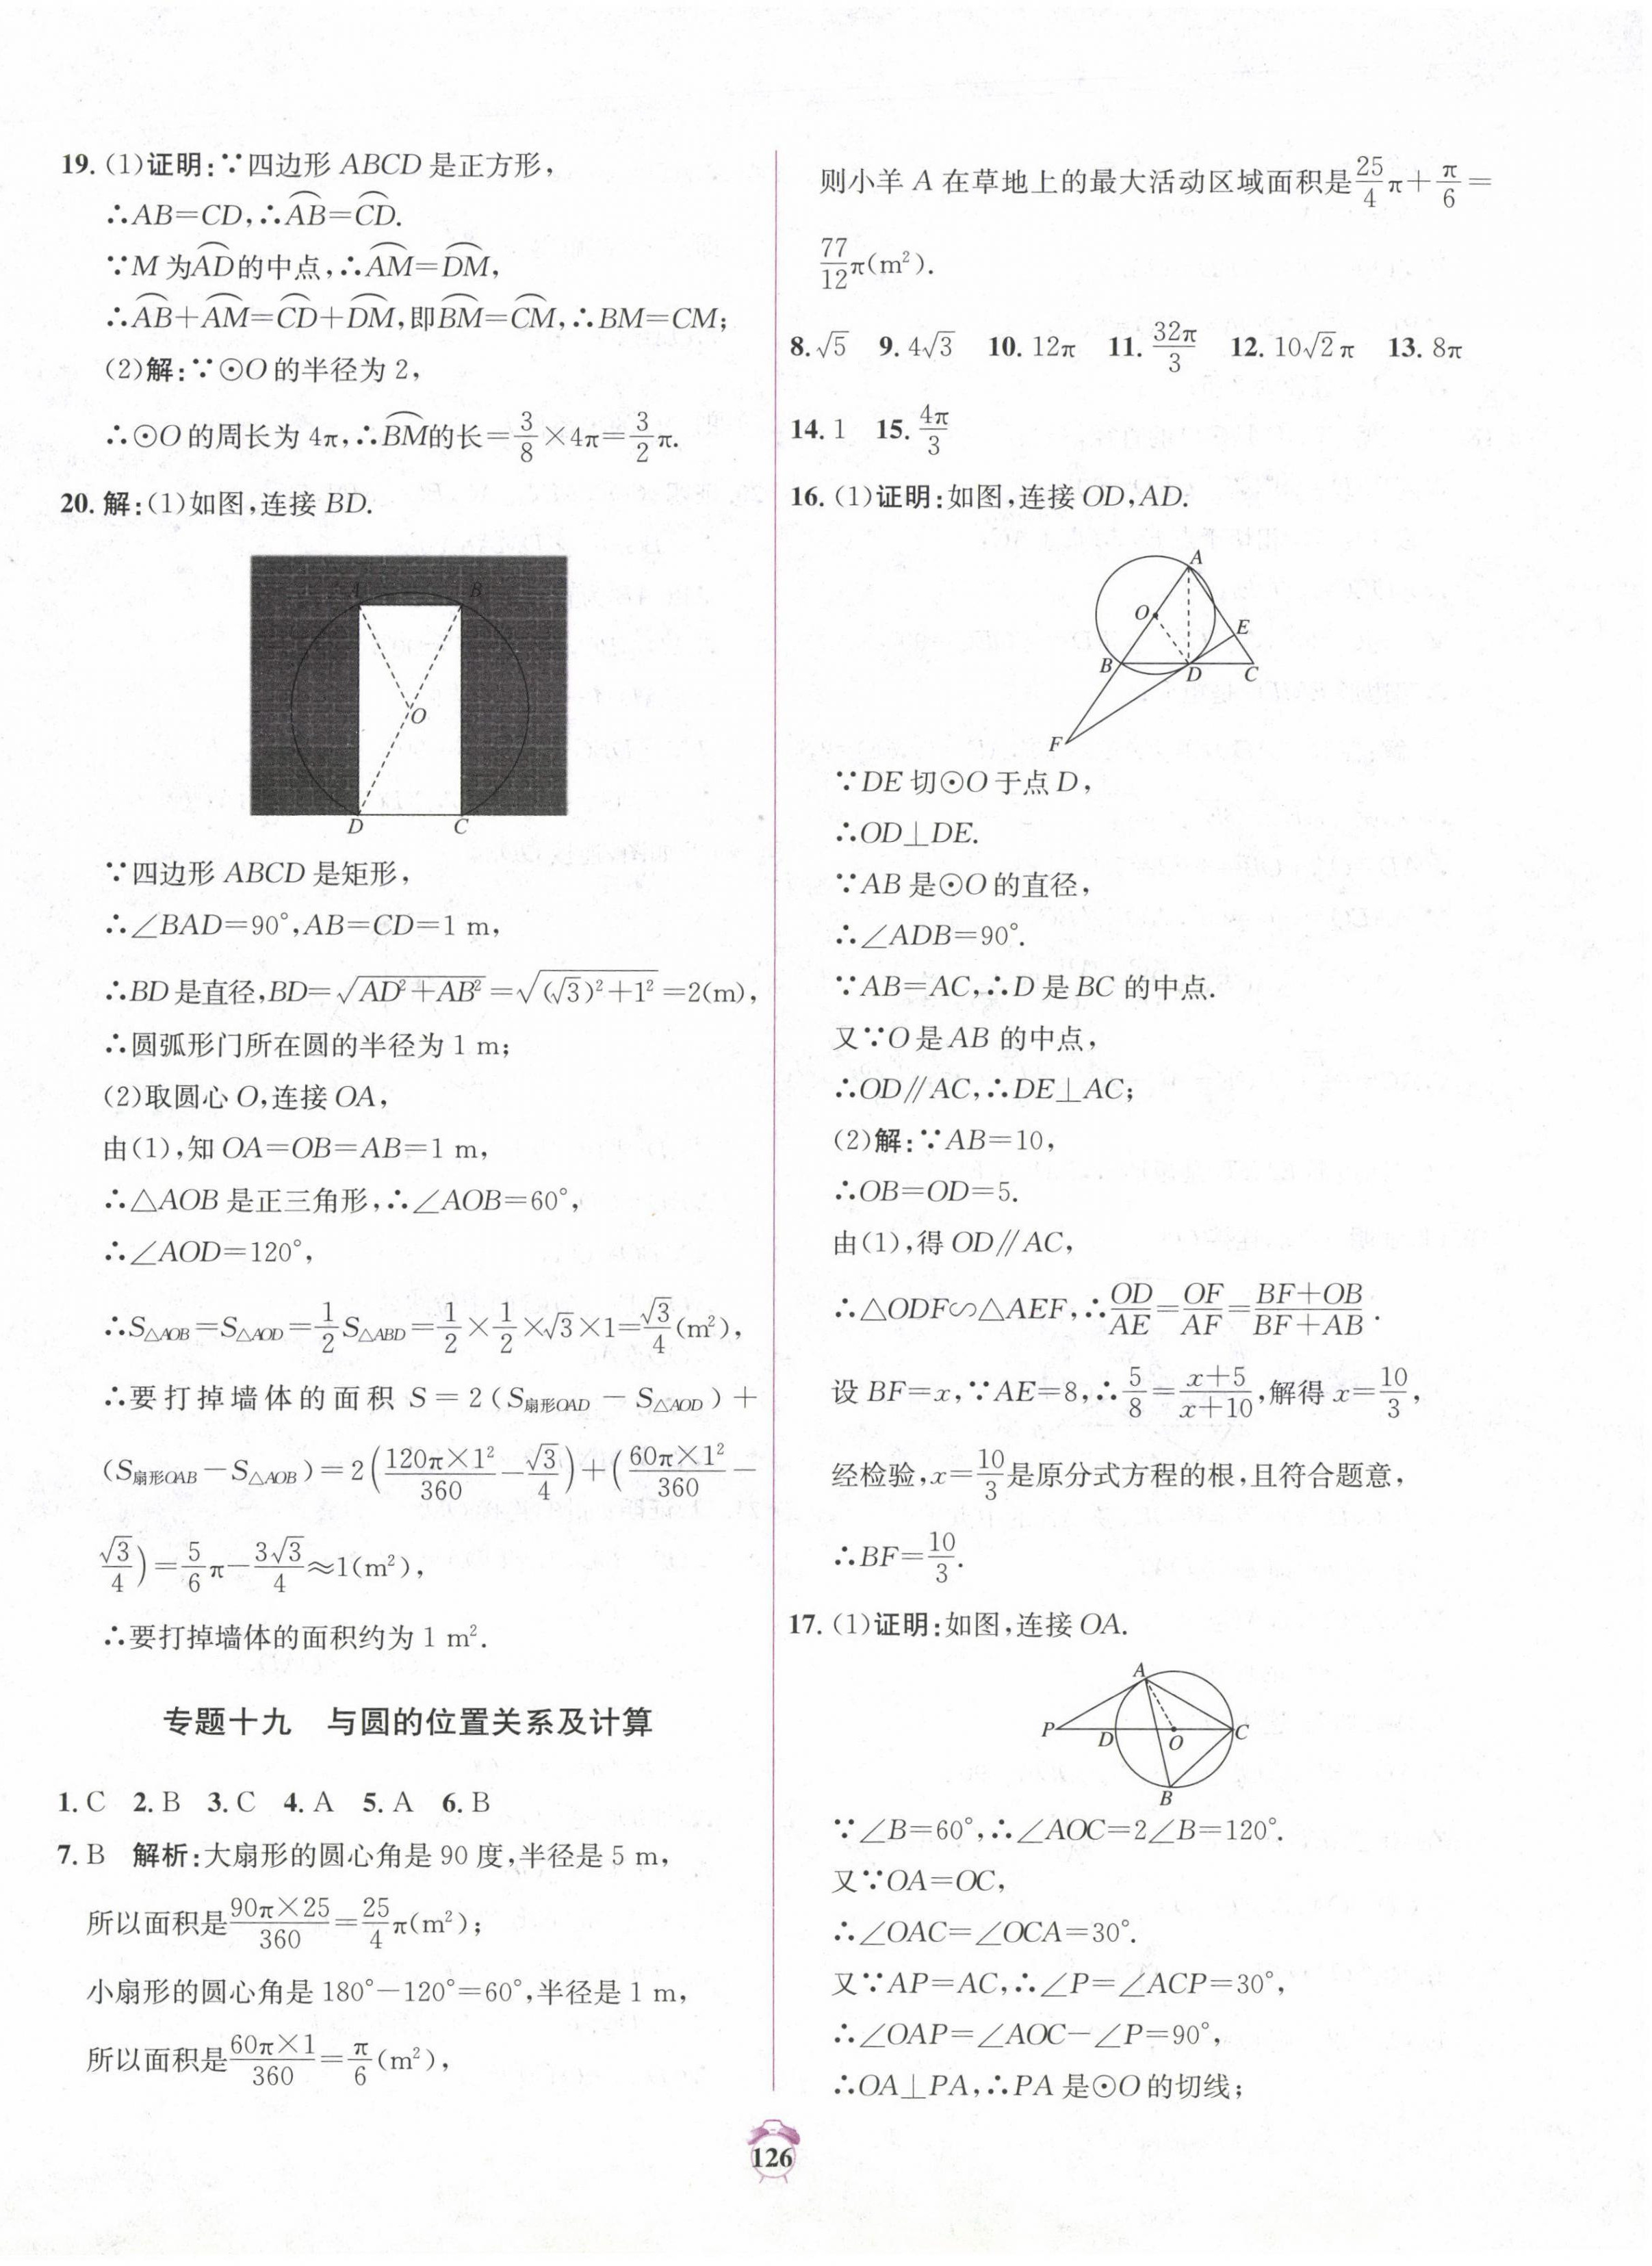 19. (1)证明:∵四边形 ABCD 是正方形,
∴AB=CD,∴⌒AB=⌒CD.
∵M 为⌒AD的中点,∴⌒AM=⌒DM,
∴⌒AB+⌒AM=⌒CD+⌒DM,即⌒BM=⌒CM,∴BM=CM;
(2)解:∵⊙O 的半径为 2,
∴⊙O 的周长为 4π,∴⌒BM的长=3/8×4π=3/2π.
20. 解:(1)如图,连接 BD.
A B
O
D C
∵四边形 ABCD 是矩形,
∴∠BAD=90°,AB=CD=1 m,
∴BD 是直径,BD=√(AD²+AB²)=√((√3)²+1²)=2(m),
∴圆弧形门所在圆的半径为 1 m;
(2)取圆心 O,连接 OA,
由(1),知 OA=OB=AB=1 m,
∴△AOB 是正三角形,∴∠AOB=60°,
∴∠AOD=120°,
∴S△AOB=S△AOD=1/2S△ABD=1/2×1/2×√3×1=√3/4(m²),
∴要打掉墙体的面积 S=2(S扇形OAD-S△AOD)+
(S扇形OAB-S△AOB)=2(120π×1²/360-√3/4)+(60π×1²/360-
√3/4)=5/6π-3√3/4≈1(m²),
∴要打掉墙体的面积约为 1 m².
专题十九 与圆的位置关系及计算
1. C 2. B 3. C 4. A 5. A 6. B
7. B 解析:大扇形的圆心角是 90 度,半径是 5 m,
所以面积是90π×25/360=25/4π(m²);
小扇形的圆心角是 180°-120°=60°,半径是 1 m,
所以面积是60π×1/360=π/6(m²),
则小羊 A 在草地上的最大活动区域面积是25/4π+π/6=
77/12π(m²).
8. √5 9. 4√3 10. 12π 11. 32π/3 12. 10√2π 13. 8π
14. 1 15. 4π/3
16. (1)证明:如图,连接 OD,AD.
A
O
E
B D C
F
∵DE 切⊙O 于点 D,
∴OD⊥DE.
∵AB 是⊙O 的直径,
∴∠ADB=90°.
∵AB=AC,∴D 是 BC 的中点.
又∵O 是 AB 的中点,
∴OD∥AC,∴DE⊥AC;
(2)解:∵AB=10,
∴OB=OD=5.
由(1),得 OD∥AC,
∴△ODF∽△AEF,∴OD/AE=OF/AF=(BF+OB)/(BF+AB).
设 BF=x,∵AE=8,∴5/8=(x+5)/(x+10),解得 x=10/3,
经检验,x=10/3是原分式方程的根,且符合题意,
∴BF=10/3.
17. (1)证明:如图,连接 OA.
A
P D O C
B
∵∠B=60°,∴∠AOC=2∠B=120°.
又∵OA=OC,
∴∠OAC=∠OCA=30°.
又∵AP=AC,∴∠P=∠ACP=30°,
∴∠OAP=∠AOC-∠P=90°,
∴OA⊥PA,∴PA 是⊙O 的切线;
126